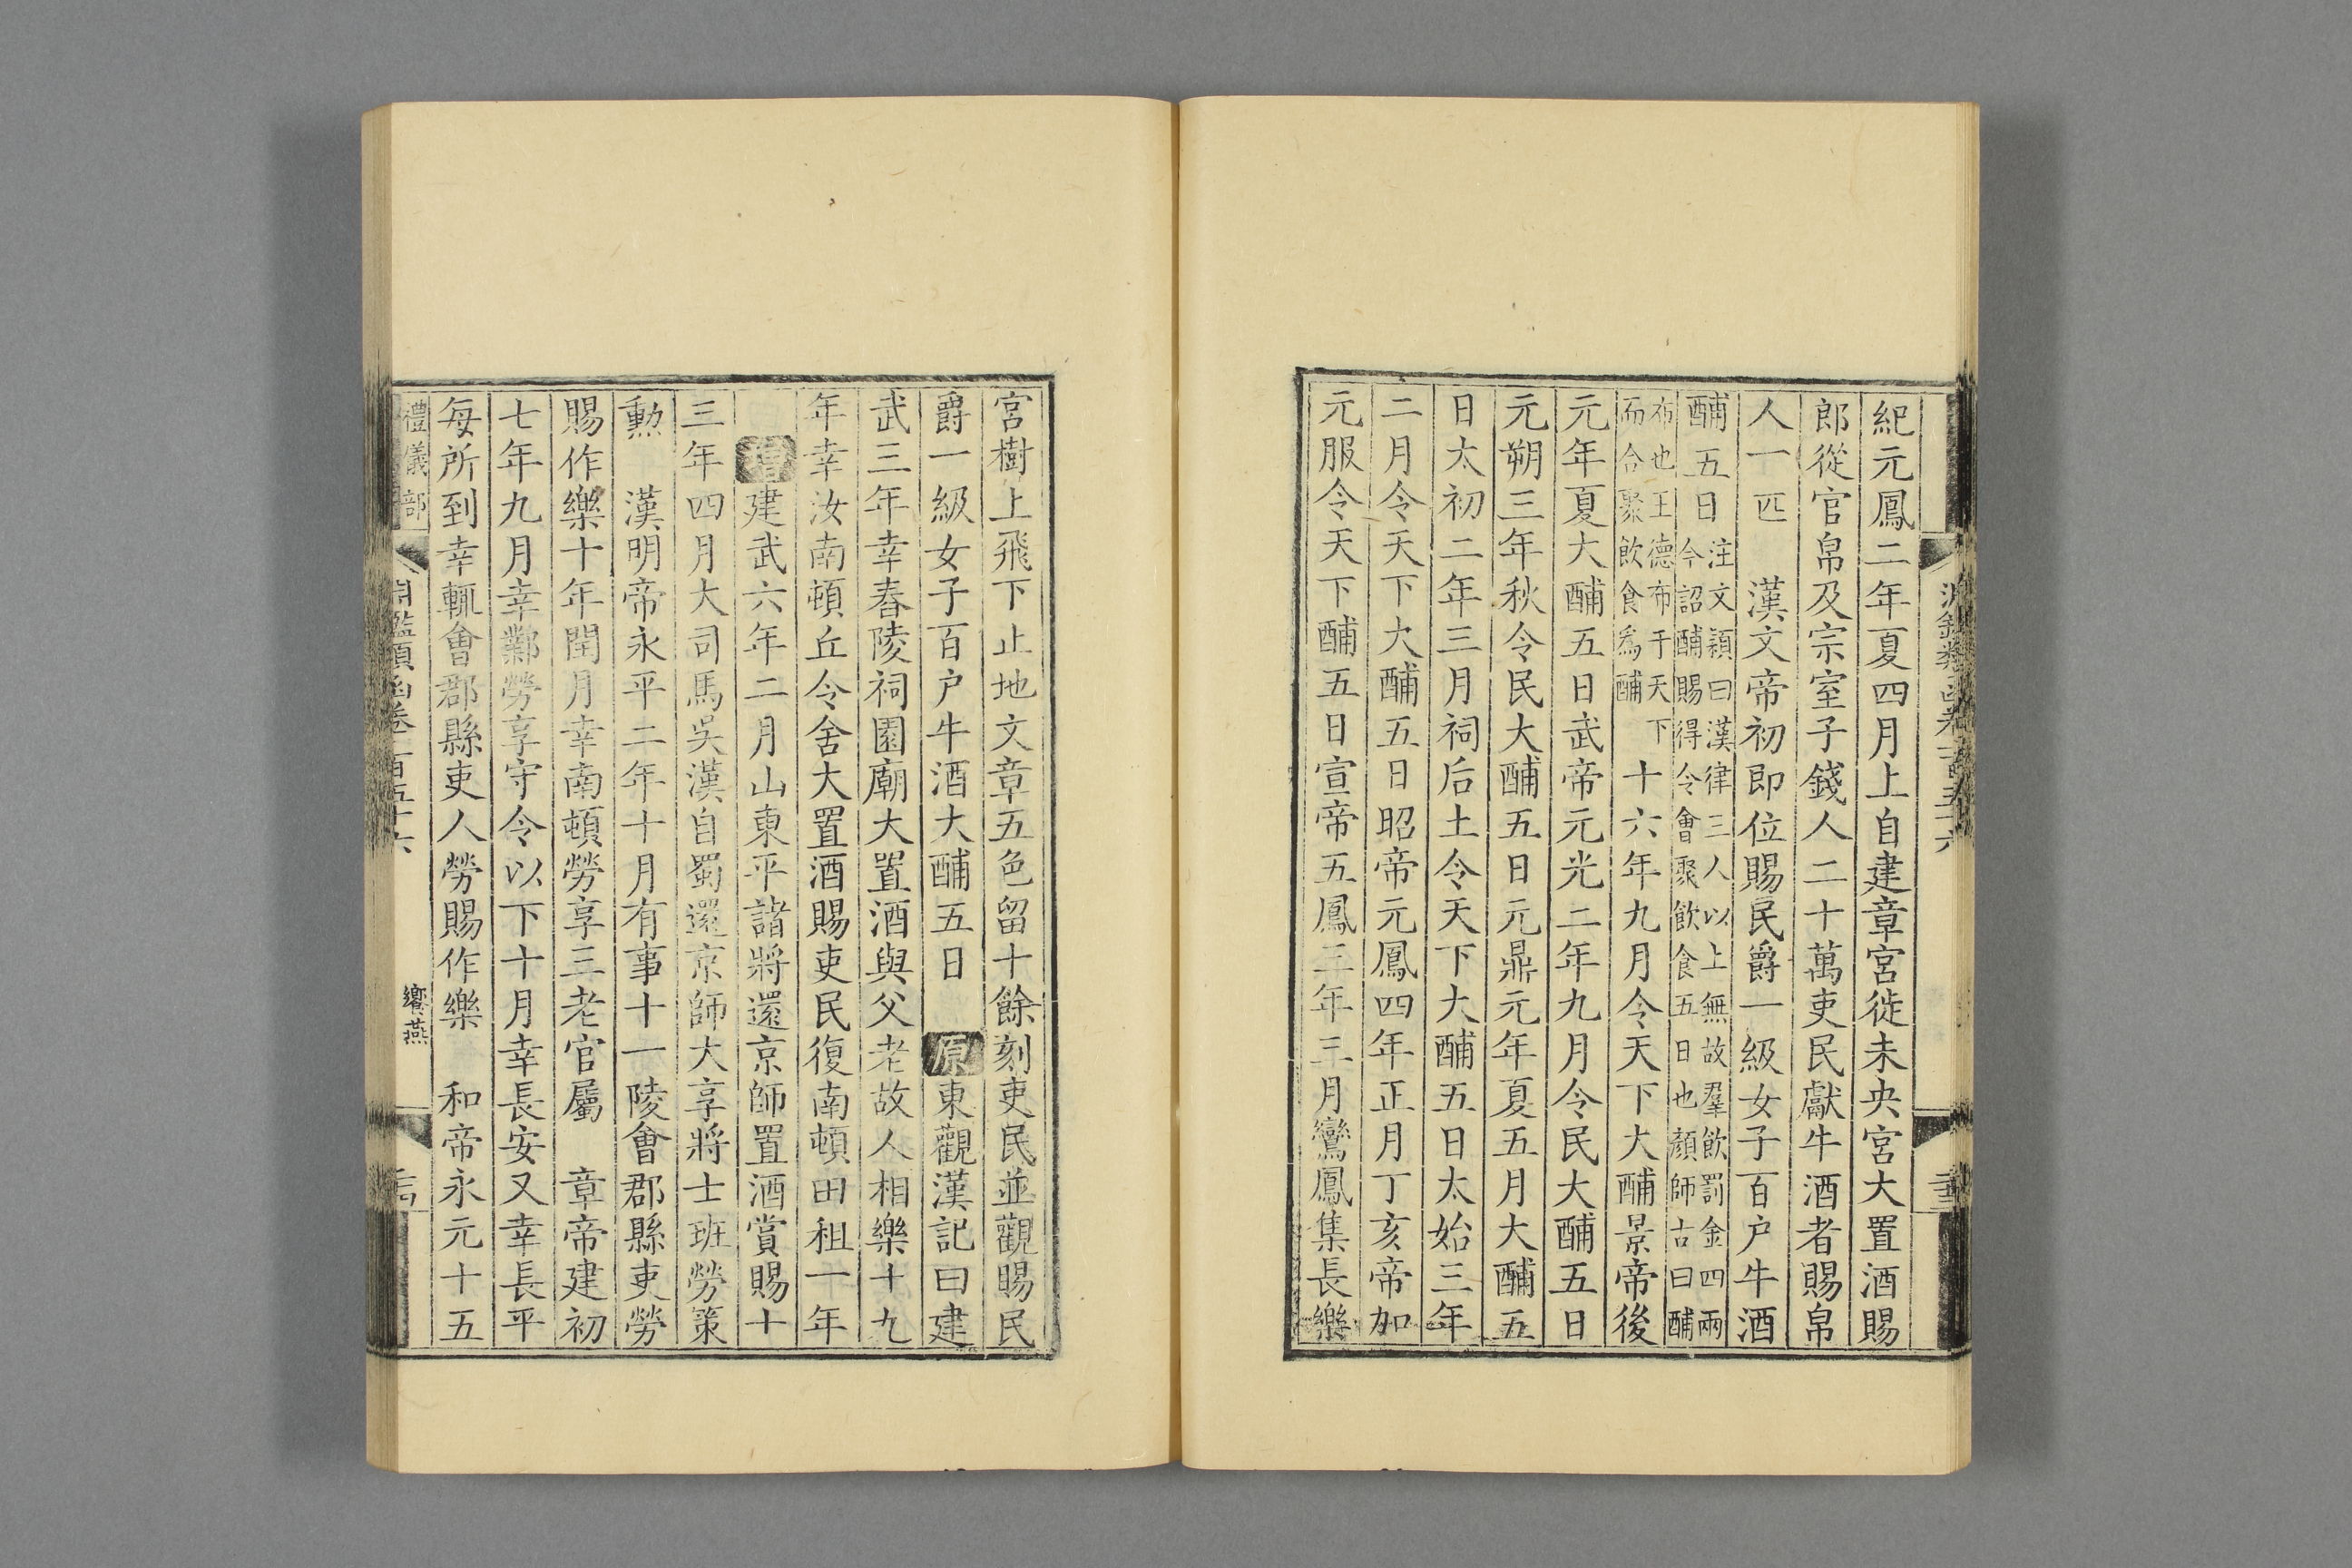 紀元鳳二年夏四月上自建章宮徙未央宮大置酒賜
郎從官帛及宗室子錢人二十萬吏民獻牛酒者賜帛
人一匹　漢文帝初即位賜民爵一級女子百户牛酒
酺五日注文穎曰漢律三人以上無故羣飲罰金四兩
今詔酺賜得令會聚飲食五日也顏師古曰酺
布也王德布于天下
而合聚飲食爲酺
十六年九月令天下大酺景帝後
元年夏大酺五日武帝元光二年九月令民大酺五日
元朔三年秋令民大酺五日元鼎元年夏五月大酺五
日太初二年三月祠后土令天下大酺五日太始三年
二月令天下大酺五日昭帝元鳳四年正月丁亥帝加
元服令天下酺五日宣帝五鳳三年三月鸞鳳集長樂
宮樹上飛下止地文章五色留十餘刻吏民並觀賜民
爵一級女子百户牛酒大酺五日　原東觀漢記曰建
武三年幸舂陵祠園廟大置酒與父老故人相樂十九
年幸汝南頓丘令舍大置酒賜吏民復南頓田租一年
增建武六年二月山東平諸將還京師置酒賞賜十
三年四月大司馬吳漢自蜀還京師大享將士班勞策
勲　漢明帝永平二年十月有事十一陵會郡縣吏勞
賜作樂十年閏月幸南頓勞享三老官屬　章帝建初
七年九月幸鄴勞享守令以下十月幸長安又幸長平
每所到幸輒會郡縣吏人勞賜作樂　和帝永元十五
禮儀部
淵鑑類函卷一百五十六
饗燕